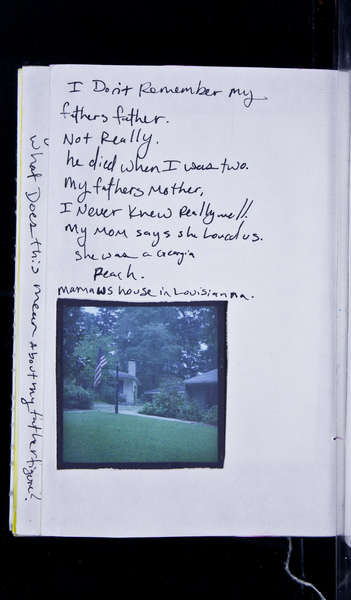 I Don't Remember my
fathers father.
Not Really.
he died when I was two.
my fathers Mother,
I Never Knew Really well.
my Mom says she Loved us.
she was a Georgia
Peach.
mamaws house in Louisianna.
What Does this mean about my father figure?